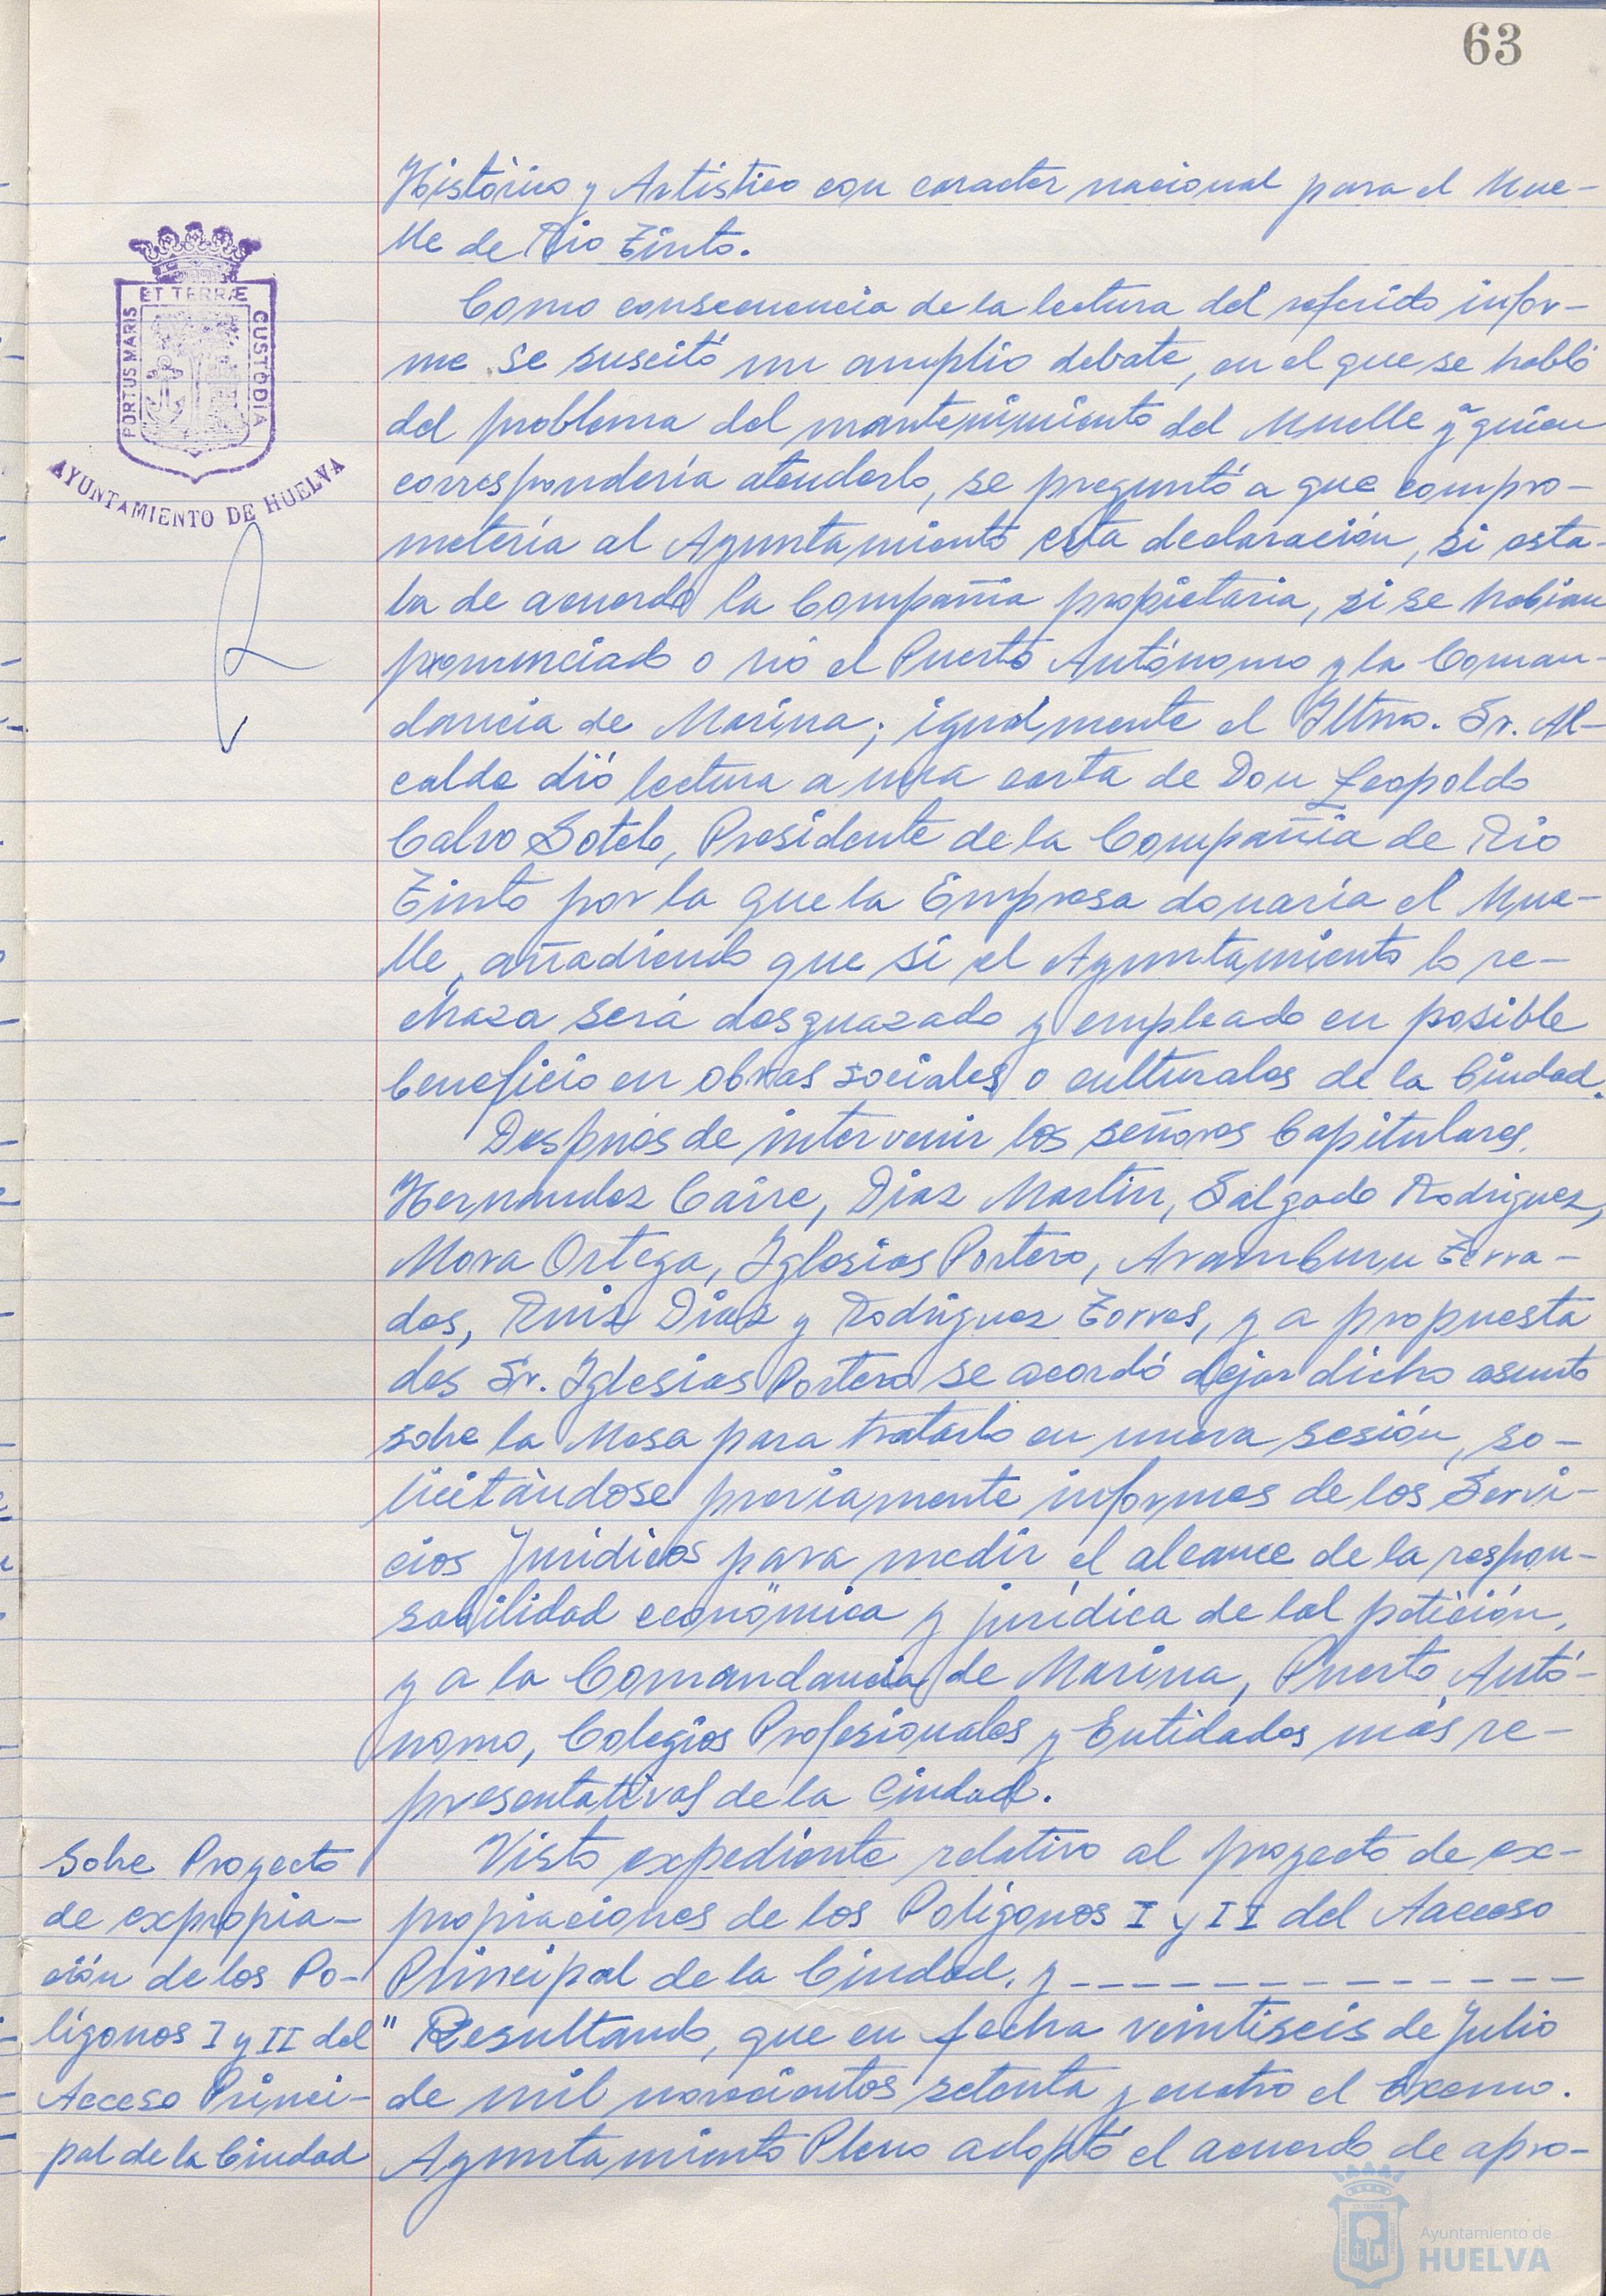 63
Histórico y Artístico con caracter nacional para el Mue-
lle de Rio Tinto.
Como consecuencia de la lectura del referido infor-
me se suscitó un amplio debate, en el que se habló
del problema del mantenimiento del Muelle y a quien
correspondería atenderlo, se preguntó a que compro-
metería al Ayuntamiento esta declaración, si esta-
ba de acuerdo la Compañia propietaria, si se habian
pronunciado o nó el Puerto Autónomo y la Coman-
dancia de Marina; igualmente el Iltmo. Sr. Al-
calde dió lectura a una carta de Don Leopoldo
Calvo Sotelo, Presidente de la Compañia de Rio
Tinto por la que la Empresa donaría el Mue-
lle, añadiendo que si el Ayuntamiento lo re-
chaza será desguazado y empleado en posible
beneficio en obras sociales o culturales de la Ciudad.
Después de intervenir los señores Capitulares,
Hernandez Caire, Diaz Martin, Salgado Rodriguez,
Mora Ortega, Iglesias Portero, Aramburu Terra-
des, Ruiz Diaz y Rodriguez Torres, y a propuesta
des Sr. Iglesias Portero se acordó dejar dicho asunto
sobre la Mesa para tratarlo en nueva sesión, so-
licitàndose previamente informes de los Servi-
cios Jurídicos para medir el alcance de la respon-
sabilidad económica y jurídica de tal petición,
y a la Comandancia de Marina, Puerto Autó-
nomo, Colegios Profesionales y Entidades más re-
presentativas de la Ciudad.
Sobre Proyecto
de expropia-
ción de los Po-
lígonos I y II del
Acceso Princi-
pal de la Ciudad
Visto expediente relativo al proyecto de ex-
propiaciones de los Polígonos I y II del Aacceso
Principal de la Ciudad, y -------------
" Resultando, que en fecha veintiseis de Julio
de mil novecientos setenta y cuatro el Excmo.
Ayuntamiento Pleno adoptó el acuerdo de apro-
PORTUS MARIS
ET TERRÆ
CUSTODIA
AYUNTAMIENTO DE HUELVA
Ayuntamiento de
HUELVA